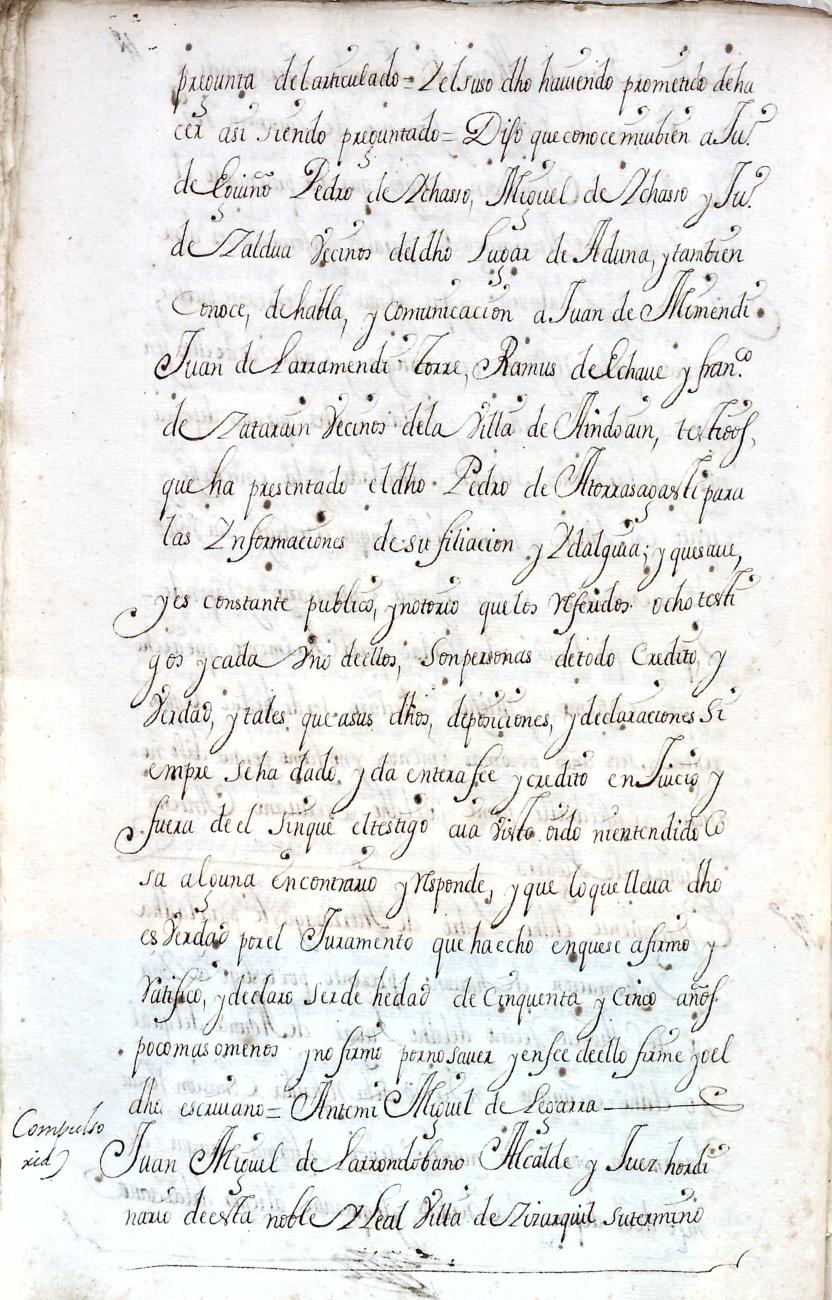 pregunta del articulado = Y el suso dho hauiendo prometido de ha
cer asi siendo preguntado = Dijo que conoce mui bien a Ju.º
de Eguino Pedro de Ychasso, Miguel de Ychasso y Ju.º
de Zaldua Vecinos del dho Lugar de Aduna, y tambien
Conoce, de habla, y comunicacion a Juan de Mimendi
Juan de Larramendi Torre, Ramus de Echaue y fran.co
de Zatarain Vecinos de la Villa de Aindoain, testigos,
que ha presentado el dho Pedro de Atorrasagasti para
las Ynformaciones de su filiacion y Ydalguia; y que saue,
y es constante publico, y notorio que los Referidos ocho testi
gos y cada Vno de ellos, son personas de todo Credito, y
Verdad, y tales que a sus dhos, deposiciones, y declaraciones Si
empre se ha dado y da entera fee y credito en Juicio y
fuera de el sin que el testigo aia Visto oido ni entendido Co
sa alguna en contrario y Responde, y que lo que lleua dho
es Verdad por el Juramento que ha echo en que se afirmo y
Ratifico, y declaro ser de hedad de Cinquenta y Cinco años
poco mas o menos y no firmo por no sauer y en fee de ello firme yo el
dho escriuano = Antemi Miguel de Legarra
Compulso
ria
Juan Miguel de Larrondobuno Alcalde y Juez hordi
nario de esta noble Y Leal Villa de Zizurquil su termino